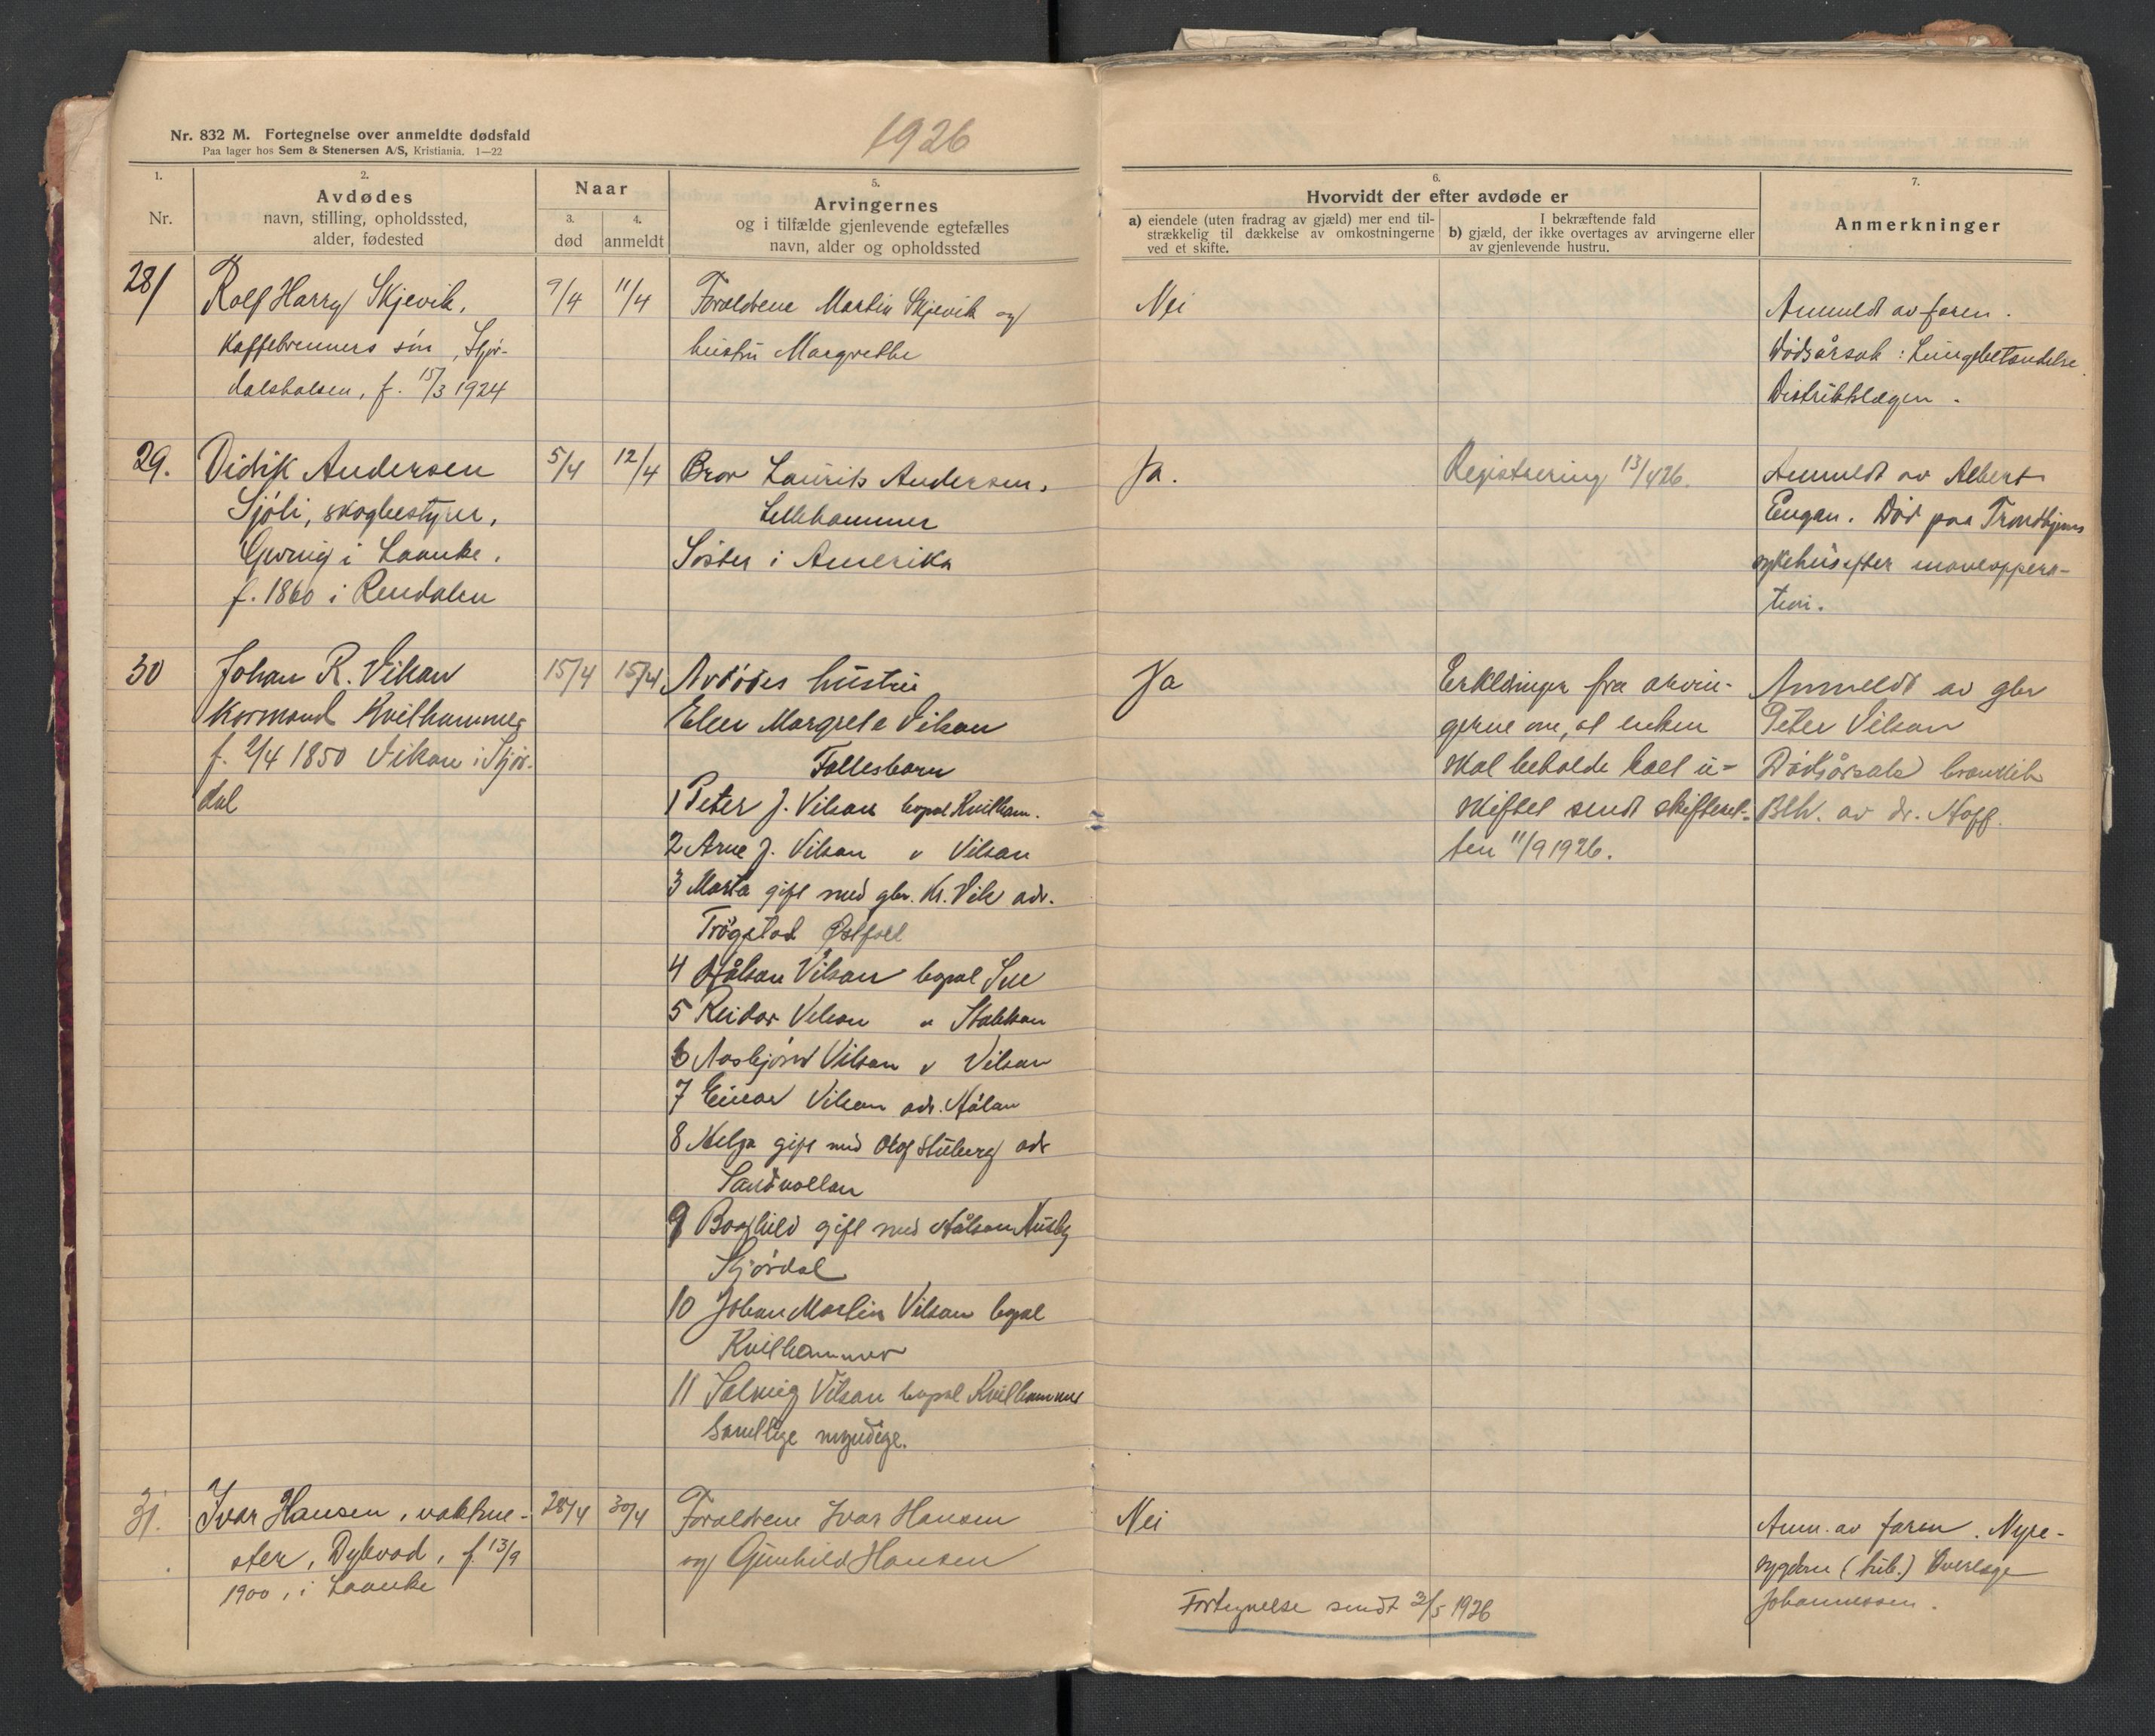 Nr. 832 M. Fortegnelse over anmeldte dødsfald
Paa lager hos Sem & Stenersen A/S, Kristiania. 1—22
1926
1.
Nr.
2.
Avdødes
navn, stilling, opholdssted,
alder, fødested
Naar
3.
død
4.
anmeldt
5.
Arvingernes
og i tilfælde gjenlevende egtefælles
navn, alder og opholdssted
6.
Hvorvidt der efter avdøde er
a) eiendele (uten fradrag av gjæld) mer end til-
strækkelig til dækkelse av omkostningerne
ved et skifte.
I bekræftende fald
b) gjæld, der ikke overtages av arvingerne eller
av gjenlevende hustru.
7.
Anmerkninger
28/
Rolf Harry Skjevik,
kaffebrenners søn, Stjør-
dalshalsen, f. 15/3 1924
9/4
11/4
Forældrene Martin Skjevik og
hustru Margrethe
Nei
Anmeldt av faren.
Dødsårsak: Lungebetændelse.
Distriktslægen.
29.
Didrik Andersen
Sjøli, skogbestyrer,
Gjevnig i Laanke.
f. 1860 i Rendalen
5/4
12/4
Bror Laurits Andersen,
Lillehammer
Søster i Amerika
Ja.
Registrering 13/4 26.
Anmeldt av Albert
Engan. Død paa Trondhjems
sykehus efter maveoppera-
tion.
30
Johan R. Vikan
kormand Kvilhammer
f. 2/4 1850 Vikan i Stjør-
dal
15/4
15/4
Avdødes hustru
Elen Margrete Vikan
Fællesbarn
1 Peter J. Vikan bopæl Kvilham.
2 Arne J. Vikan " Vikan
3 Marta gift med gbr. Kr. Vik adr.
Trøgstad Østfold
4 Håkon Vikan bopæl
5 Reidar Vikan " Stokkan
6 Aasbjørn Vikan " Vikan
7 Einar Vikan adr. Hålan
8 Helga gift med Olaf Stuberg adr
Sandvollan
9 Borghild gift med Håkon Husby
Stjørdal
10 Johan Martin Vikan bopæl
Kvilhammer
11 Solveig Vikan bopæl Kvilhammer
Samtlige myndige.
Ja
Erklæringer fra arvin-
gerne om, at enken
skal beholde boet u-
skiftet sendt skifteret-
ten 11/9 1926.
Anmeldt av gbr
Peter Vikan
Dødsårsak bronkit
Beh. av dr. Hoff.
31.
Ivar Hansen, vaktme-
ster, Dybvad, f. 13/9
1900, i Laanke
28/4
30/4
Forældrene Ivar Hansen
og Gunhild Hansen
Nei
Fortegnelse sendt 3/5 1926
Anm. av faren. Nyre-
sygdom (tub.) Overlæge
Johannessen.